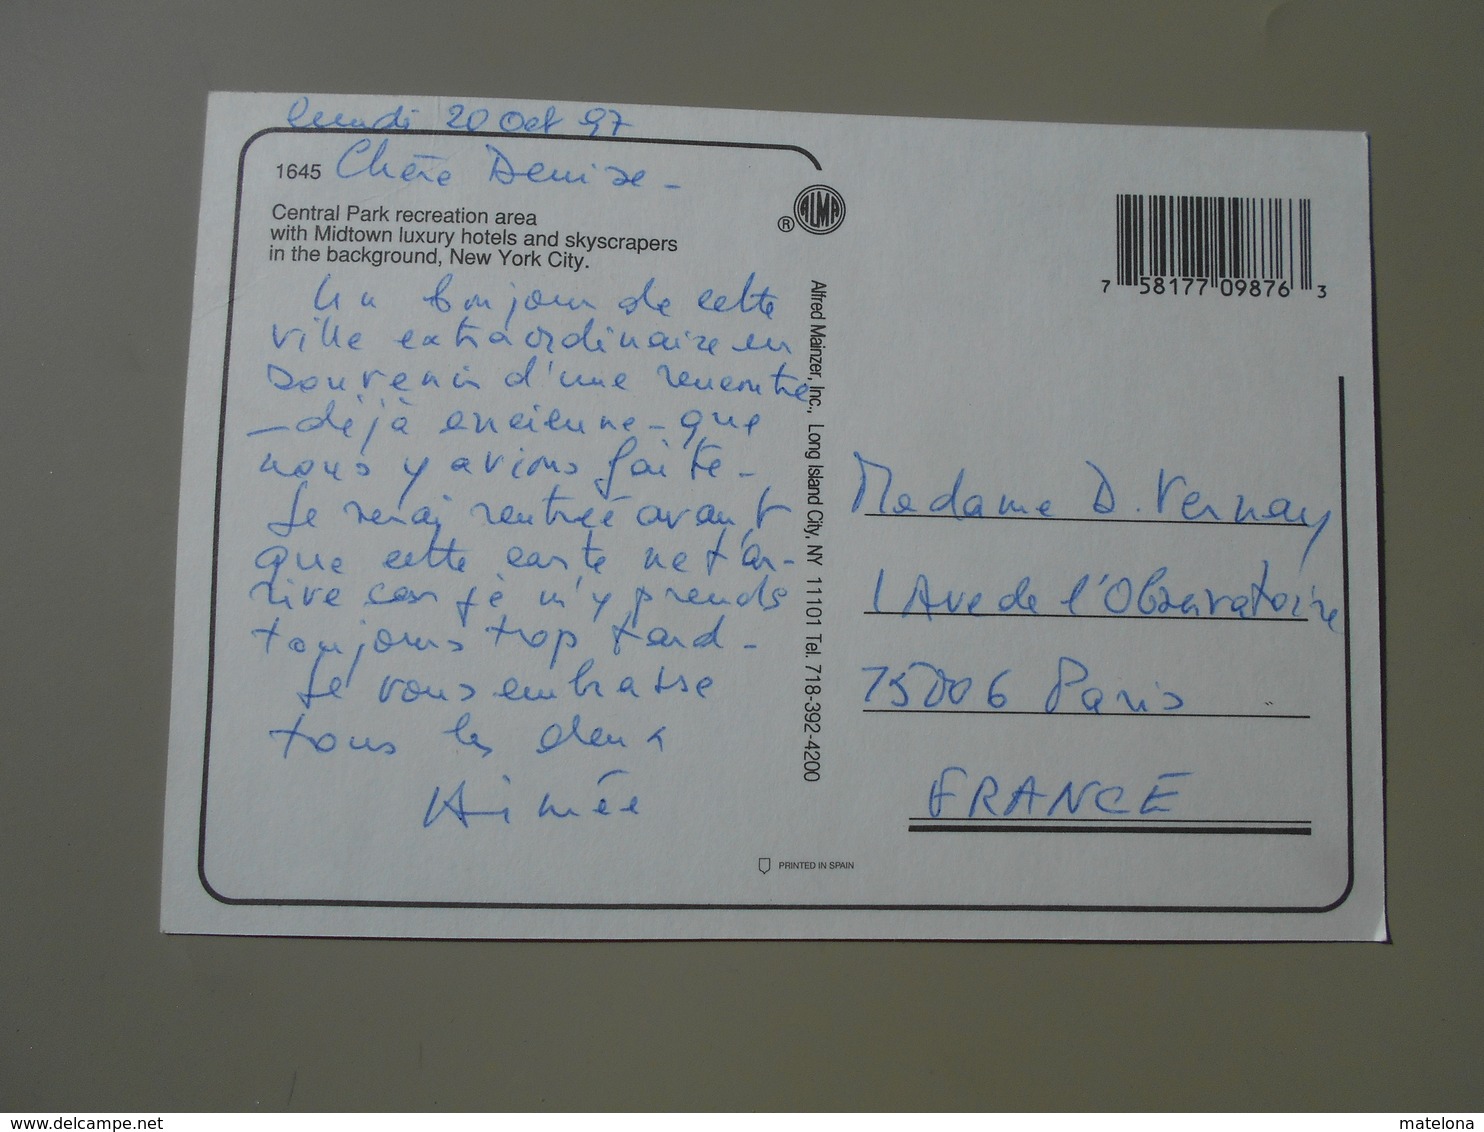 lundi 20 Oct 97
1645 Chère Denise -
Central Park recreation area
with Midtown luxury hotels and skyscrapers
in the background, New York City.
Un bonjour de cette
ville extraordinaire en
souvenir d'une rencontre
- déjà ancienne - que
nous y avions faite -
Je serai rentrée avant
que cette carte ne t'ar-
rive car je m'y prends
toujours trop tard -
Je vous embrasse
tous les deux
Aimée
ALMA
®
Alfred Mainzer, Inc., Long Island City, NY 11101 Tel. 718-392-4200
PRINTED IN SPAIN
7 58177 09876 3
Madame D. Vernay
1 Ave de l'Observatoire
75006 Paris
FRANCE
www.delcampe.net
matelona